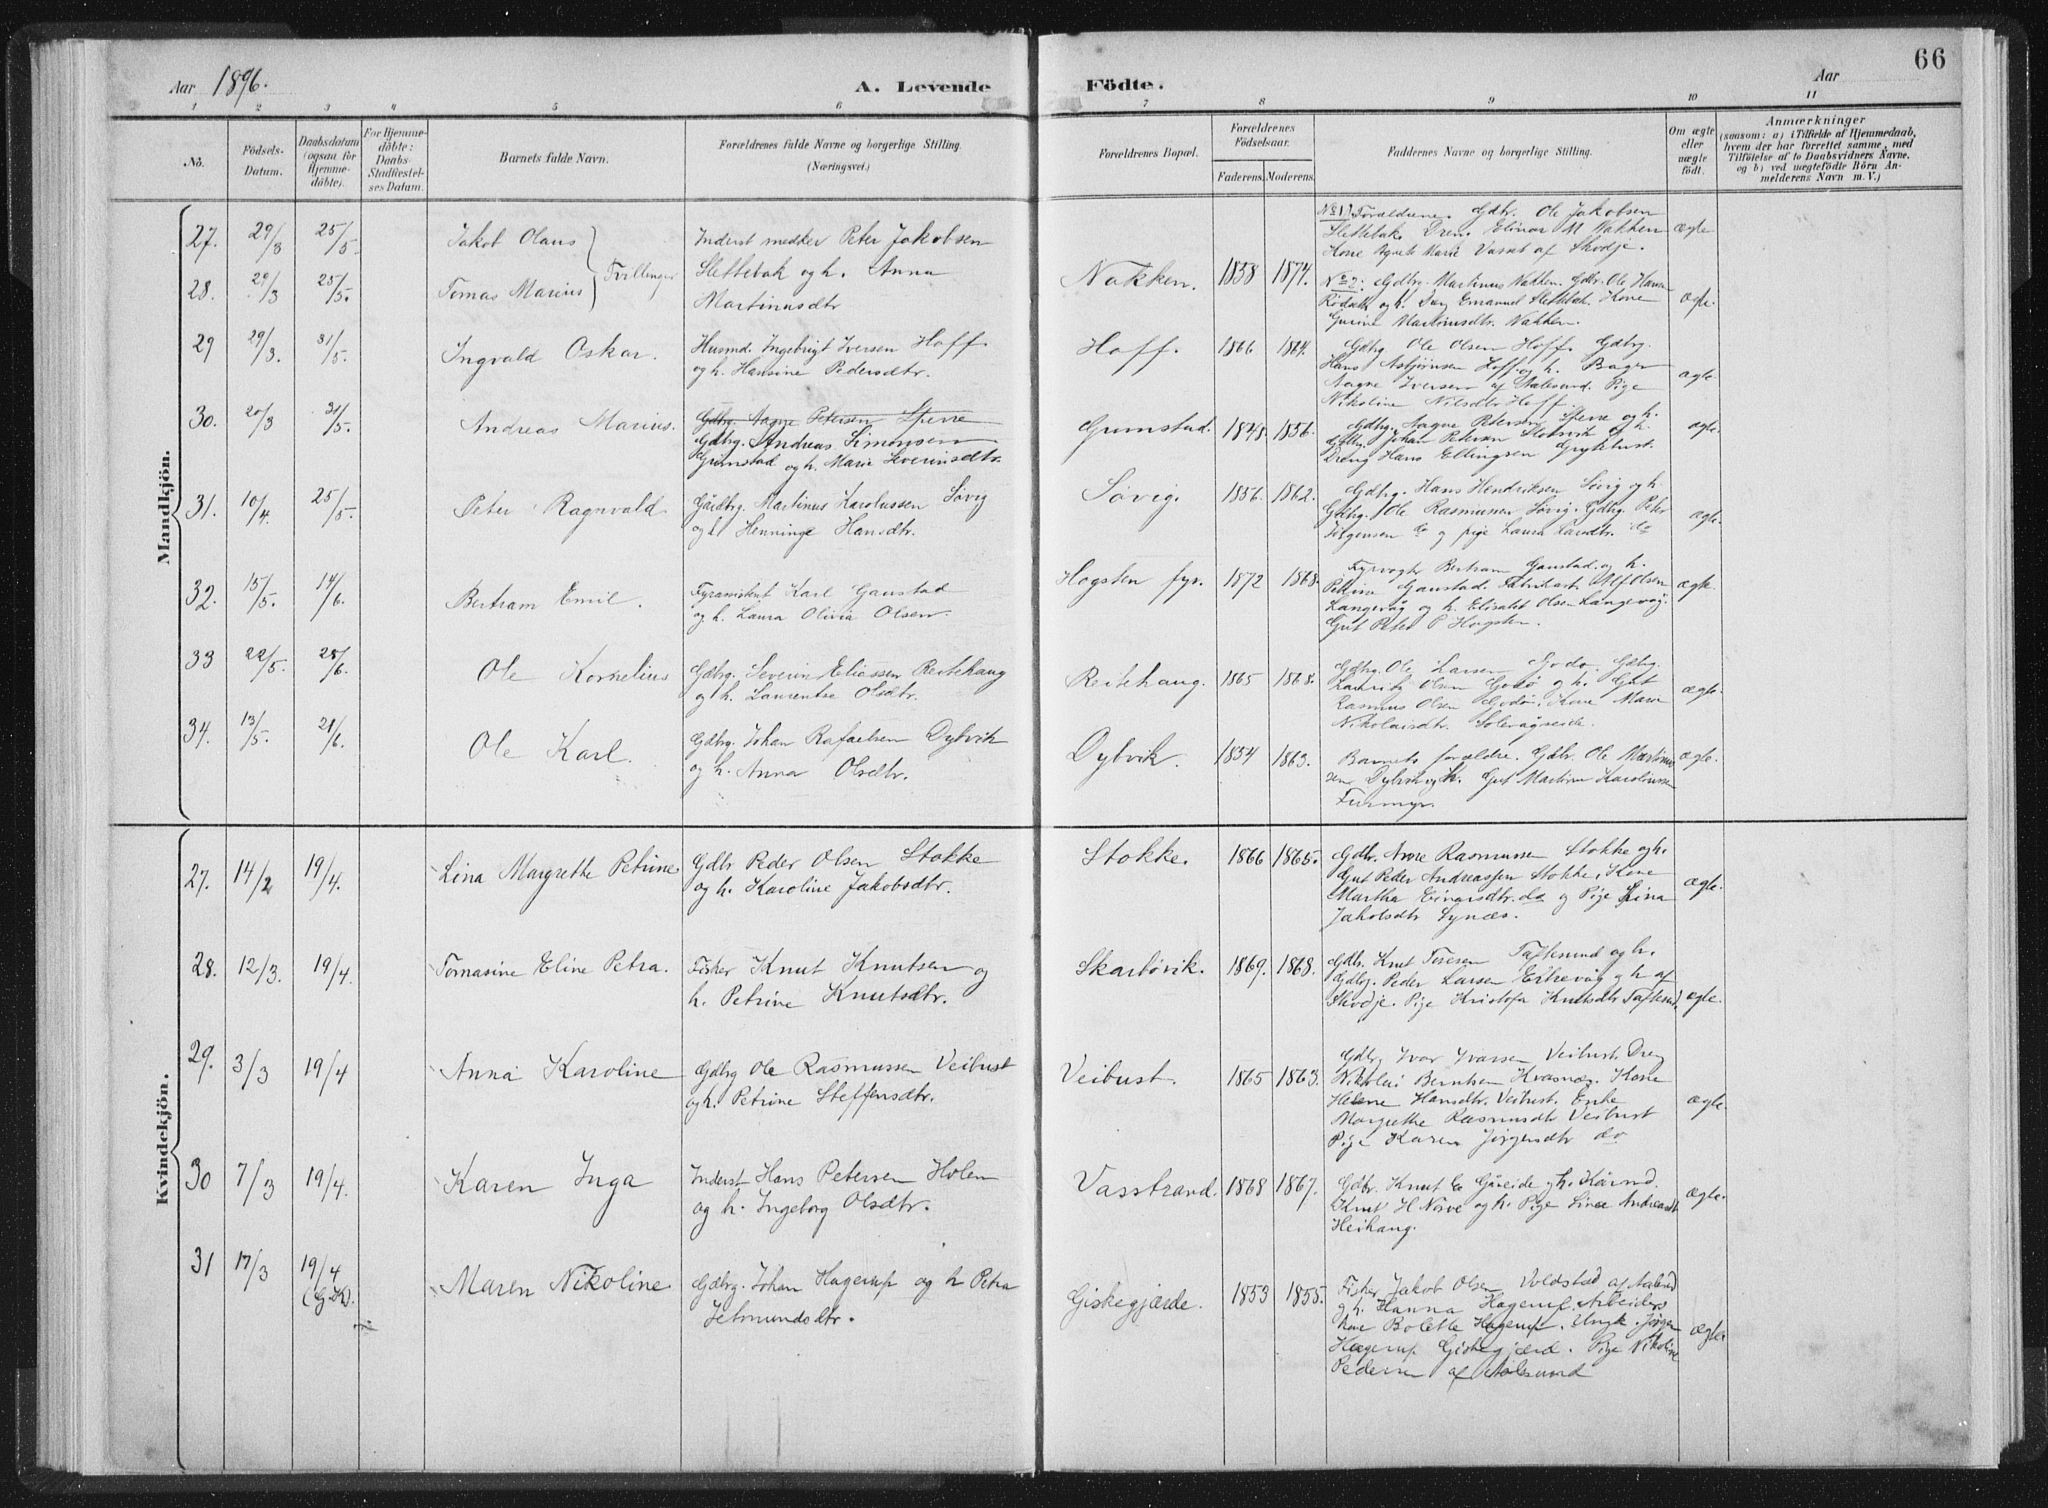 66
Aar 1896.
A. Levende Födte.
Aar
1 2 3 4 5 6 7 8 9 10 11
Nö.
Födsels-Datum.
Daabsdatum (ogsaa for Hjemme-döbte).
For Hjemme-döbte: Daabs-Stadfæstel-ses Datum.
Barnets fulde Navn.
Forældrenes fulde Navne og borgerlige Stilling.
(Næringsvei.)
Forældrenes Bopæl.
Forældrenes Födselsaar.
Faderens. Moderens.
Faddernes Navne og borgerlige Stilling.
Om ægte eller uægte födt.
Anmærkninger
(saasom: a) i Tilfælde af Hjemmedaab, hvem der har forrettet samme, med Tilföielse af to Daabsvidners Navne, og b) ved uægtefödte Börn An-melderens Navn m. V.)
Mandkjön.
27. 29/3 25/5. Jakob Olaus
28. 29/3 25/5. Tomas Marius
Tvillinger
Inderst Peter Jakobsen
Slettebak og h. Anna
Martinusdtr
Nakken. 1858 1874.
No 1) Forældrene. Gdbr. Ole Jakobsen
Slettebak. Elinor M Nakken
Kone Marie af Skodje.
ægte
No 2: Gdbrg. Martinus Nakken. Gdbr. Ole Hansen
og h. Emanuel Slettebak. Kone
Gurine Martinusdtr. Nakken.
ægte.
29 29/3. 31/5. Ingvald Oskar.
Husmd. Ingebrigt Iversen Hoff
og h. Hansine Pedersdtr.
Hoff. 1866 1864.
Gdbrg Ole Olsen Hoff. Gdbrg.
Hans Asbjörnsen Hoff og h. Bager
Aagne Iversen af Aalesund. Pige
Nikoline Nilsdtr Hoff.
ægte.
30. 20/3 31/5. Andreas Marius.
Gdbrg. Aagne Petersen Sperre
Gdbrg. Andreas Simonsen
Grimstad og h. Marie Severinsdtr.
Grimstad. 1848. 1856.
Gdbrg. Aagne Petersen Sperre og h.
Gdbrg. Johan Petersen og h.
Dreng Hans Ellingsen
ægte.
31. 10/4. 25/5. Peter Ragnvald
Gårdbrg. Martinus Karolussen Sövig
og h. Henninge Hansdtr.
Sövig. 1856. 1862.
Gdbrg. Hans Hendriksen Sövig og h.
Gdbrg. Ole Rasmussen Sövig. Gdbrg. Peter
Jörgensen do og pige Laura do
ægte.
32. 15/5. 14/6. Bertram Emil.
Karl Ganstad
og h. Laura Olivia Olsen.
Hogsten fyr. 1872 1868.
Fyrvogter Bertram Ganstad og h.
Petrine Ganstad. Olsen
Langevåg og h. Elisabet Olsen Langevåg.
Gut Peter P Hogsten.
ægte.
33 22/5. 28/6. Ole Kornelius
Gdbrg. Severin Eliassen Reitehaug
og h. Laurentse Olsdtr.
Reitehaug. 1865 1868.
Gdbrg. Ole Larsen Godö. Gdbrg.
Lauritz Olsen Godö og h. Gut
Rasmus Olsen Godö. Kone Maren
Nikolaisdtr. Solevågseide.
ægte.
34. 13/5. 21/6. Ole Karl.
Gdbrg. Johan Rafaelsen Dybvik
og h. Anna Olsdtr.
Dybvik. 1854 1863.
Barnets forældre. Gdbr. Ole Martinus-
sen Dybvik og h. Gut Martin Karolussen
Furmyr.
ægte.
Kvindekjön.
27. 14/2 19/4. Lina Margrethe Petrine
Gdbr Peder Olsen Stokke
og h. Karoline Jakobsdtr.
Stokke. 1866 1865.
Gdbr. Arne Rasmussen Stokke og h.
Gut Peder Andreassen Stokke, Kone
Martha Einarsdtr. do og Pige Lina
Jakobsdtr Synæs.
ægte.
28. 12/3. 19/4. Tomasine Eline Petra.
Fisker Knut Knutsen og
h. Petrine Knutsdtr.
Skarbövik. 1869. 1868.
Gdbr. Knut Toresen Taftesund og h.
Gdbrg. Peder Larsen Ertrevåg og h af
Skodje. Pige Kristofa Knutsdtr Taftesund.
ægte.
29. 3/3 19/4 Anna Karoline
Gdbrg Ole Rasmussen Veibust
og h. Petrine Steffensdtr.
Veibust. 1865 1863.
Gdbr. Ivar Ivarsen Veibust. Dreng
Nikolai Berntsen Kvasnæs. Kone
Helene Hansdtr. Veibust. Enke
Margrethe Rasmusdtr Veibust
Pige Karen Jörgensdtr do
ægte.
30 7/3 19/4. Karen Inga
Inderst Hans Petersen Holen
og h. Ingeborg Olsdtr.
Vasstrand. 1868 1867.
Gdbr. Knut og h. Kårmd.
Knut H Nörve og h. Pige Andreasdtr
Heihaug.
ægte.
31 17/3 19/4 Maren Nikoline
Gdbrg. Johan Hagerup og h Petra
Jetmundsdtr.
Giskegjærde. 1853 1855.
Fisker Jakob Olsen Voldstad af Aalesund
og h. Hanna Hagerup. Arbeiders
Kone Bolette Hagerup. Ungk. Jörgen
Hagerup Giskegjærd. Pige Nikoline
Pedersen af Aalesund
ægte